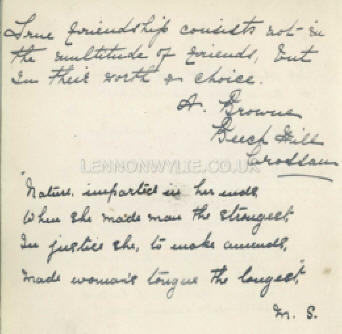 True friendship consists not in
the multitude of friends, but
in their worth & choice.
A. Browne
Beech Hill
Crossan
LENNONWYLIE.CO.UK
"Nature, impartial in her ends,
When she made man the strongest,
In justice she, to make amends,
Made woman's tongue the longest,"
M. S.